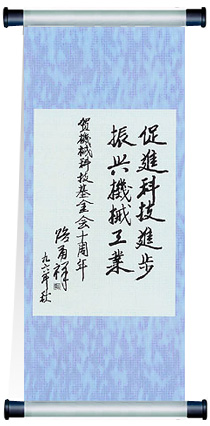 促進科技進步
振兴機械工業
贺機械科技基金会十周年
路甬祥
九六年秋